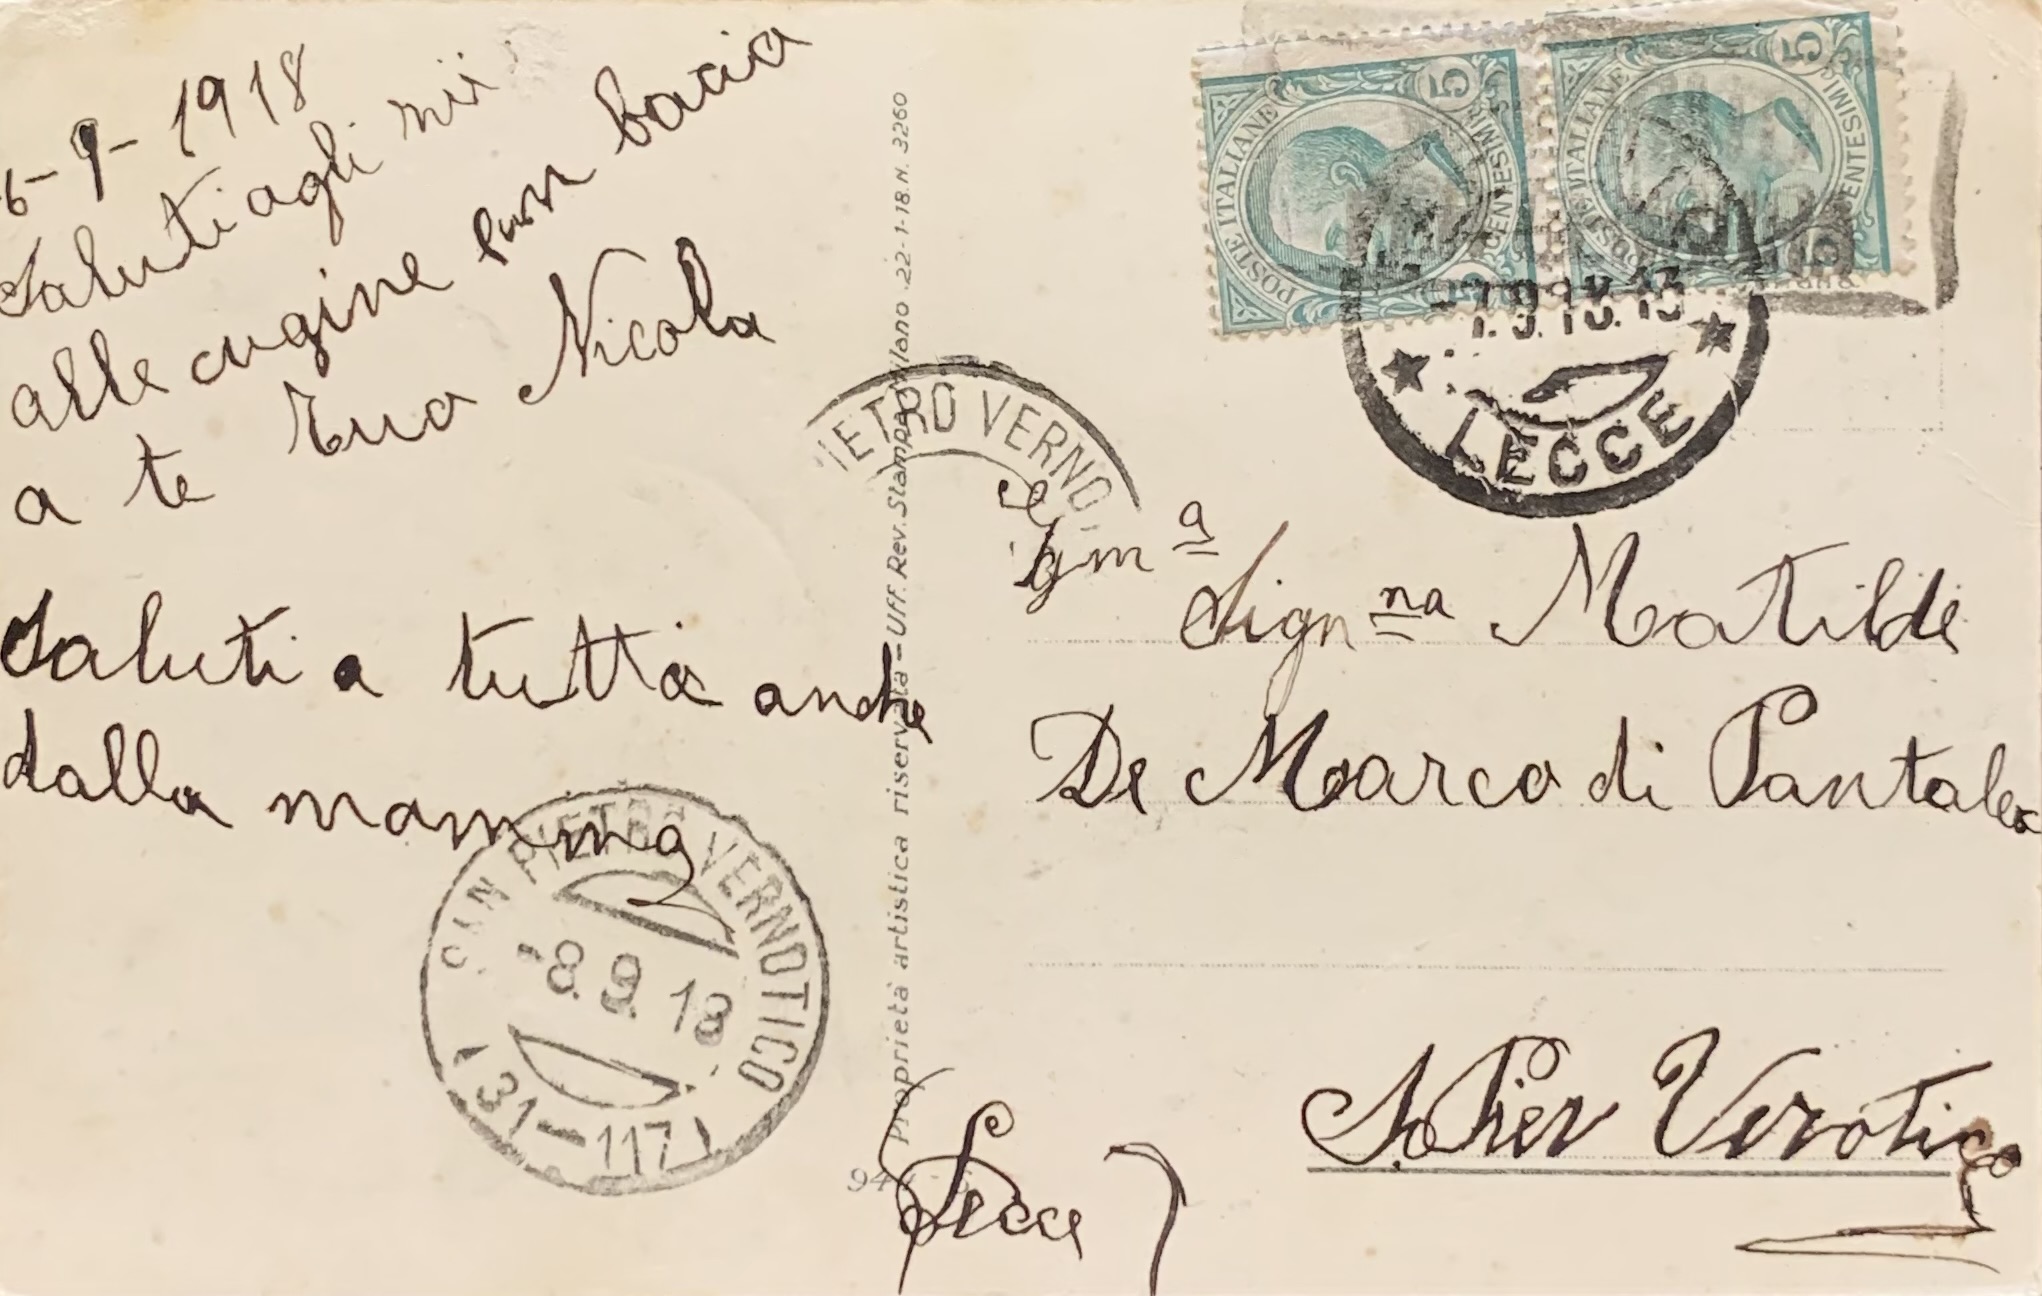 6-9-1918
Saluti agli
alle cugine bacia
a te tua Nicola
Saluti a tutta anche
dalla mamma
SAN PIETRO VERNOTICO
-8.9.18
(31-117)
Proprietà artistica riservata - Uff. Rev. Stampa Milano 22-1-18. N. 3260
PIETRO VERNO
POSTE ITALIANE
5 CENTESIMI 5
POSTE ITALIANE
5 CENTESIMI 5
LECCE
Sign na Matilde
De Marco di Pantaleo
S. Pier Verotico
(Lecce)